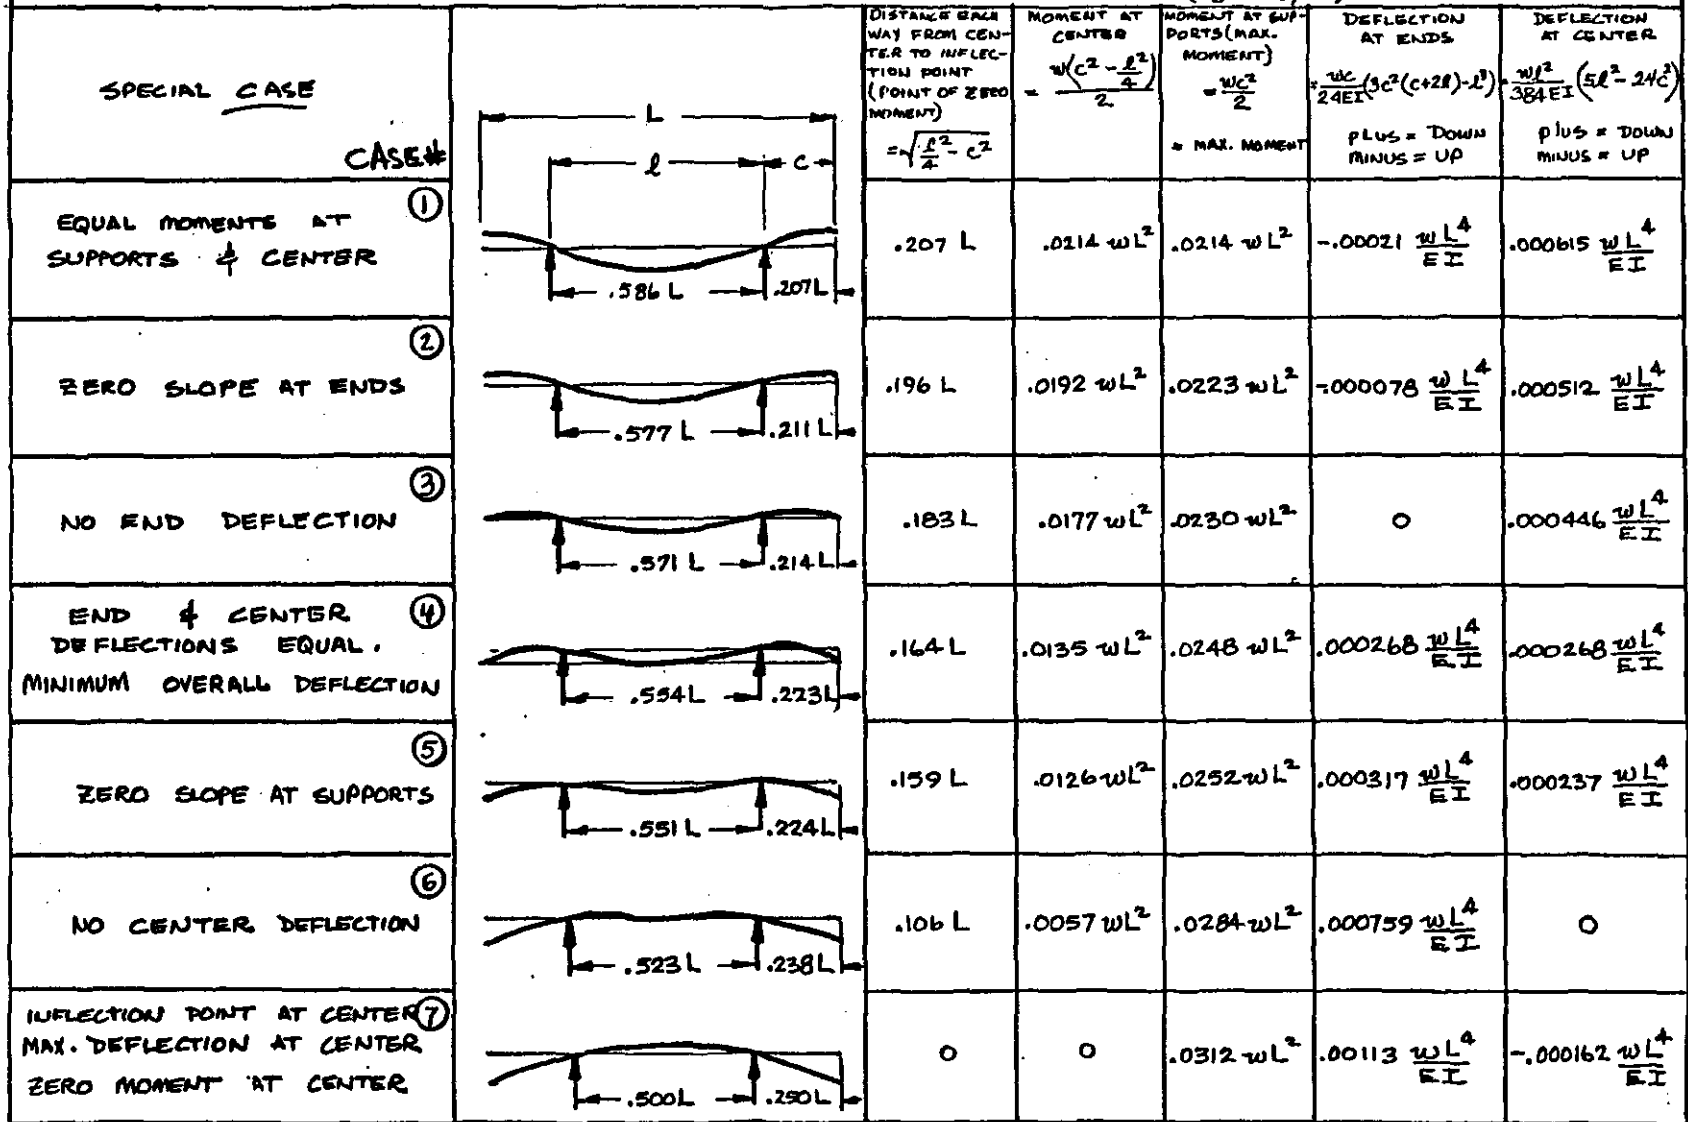 SPECIAL CASE
CASE#
L
ℓ
c
DISTANCE EACH
WAY FROM CEN-
TER TO INFLEC-
TION POINT
(POINT OF ZERO
MOMENT)
=√(ℓ²/4 - c²)
MOMENT AT
CENTER
= w(c² - ℓ²/4)/2
MOMENT AT SUP-
PORTS (MAX.
MOMENT)
= wc²/2
= MAX. MOMENT
DEFLECTION
AT ENDS
= wc/24EI (3c²(c+2ℓ)-ℓ³)
PLUS = DOWN
MINUS = UP
DEFLECTION
AT CENTER
= wℓ²/384EI (5ℓ² - 24c²)
plus = DOWN
MINUS = UP
①
EQUAL MOMENTS AT
SUPPORTS & CENTER
.586 L .207L
.207 L
.0214 wL²
.0214 wL²
-.00021 wL⁴/EI
.000615 wL⁴/EI
②
ZERO SLOPE AT ENDS
.577 L .211L
.196 L
.0192 wL²
.0223 wL²
-.000078 wL⁴/EI
.000512 wL⁴/EI
③
NO END DEFLECTION
.571 L .214L
.183 L
.0177 wL²
.0230 wL²
0
.000446 wL⁴/EI
④
END & CENTER
DEFLECTIONS EQUAL.
MINIMUM OVERALL DEFLECTION
.554L .223L
.164 L
.0135 wL²
.0248 wL²
.000268 wL⁴/EI
.000268 wL⁴/EI
⑤
ZERO SLOPE AT SUPPORTS
.551 L .224L
.159 L
.0126 wL²
.0252 wL²
.000317 wL⁴/EI
.000237 wL⁴/EI
⑥
NO CENTER DEFLECTION
.523 L .238L
.106 L
.0057 wL²
.0284 wL²
.000759 wL⁴/EI
0
⑦
INFLECTION POINT AT CENTER
MAX. DEFLECTION AT CENTER
ZERO MOMENT AT CENTER
.500L .250L
0
0
.0312 wL²
.00113 wL⁴/EI
-.000162 wL⁴/EI